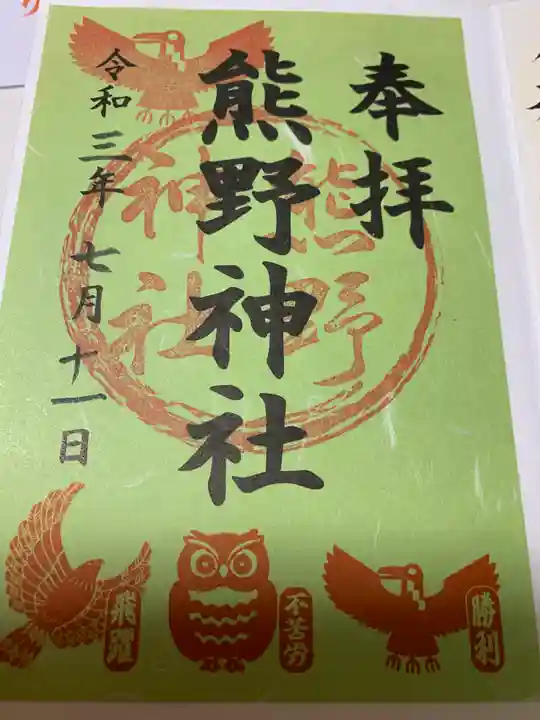 奉拝
熊野神社
令和三年 七月十一日
熊野
神社
勝利
不苦労
飛躍